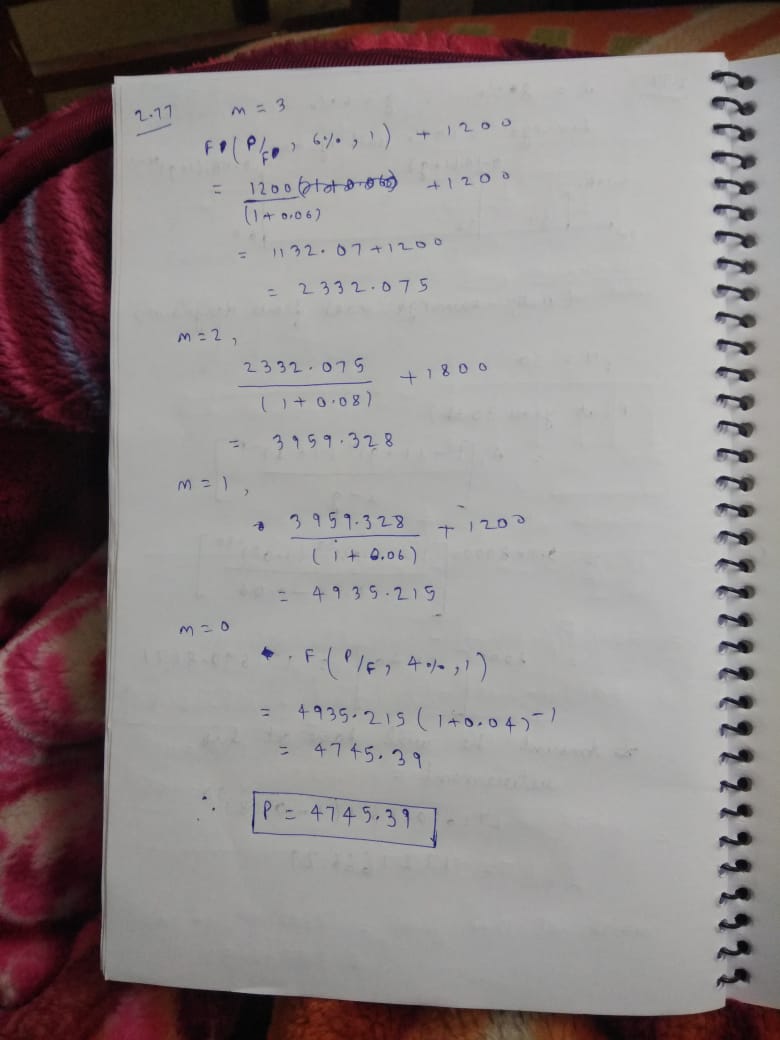 2.77 m = 3
F (P/F, 6%, 1) + 1200
= 1200 + 1200
(1+0.06)
= 1132.07+1200
= 2332.075
m=2,
2332.075 + 1800
(1+0.08)
= 3959.328
m=1,
3959.328 + 1200
(1+0.06)
= 4935.215
m=0
. F (P/F, 4%, 1)
= 4935.215 (1+0.04)-1
= 4745.39
∴ P = 4745.39